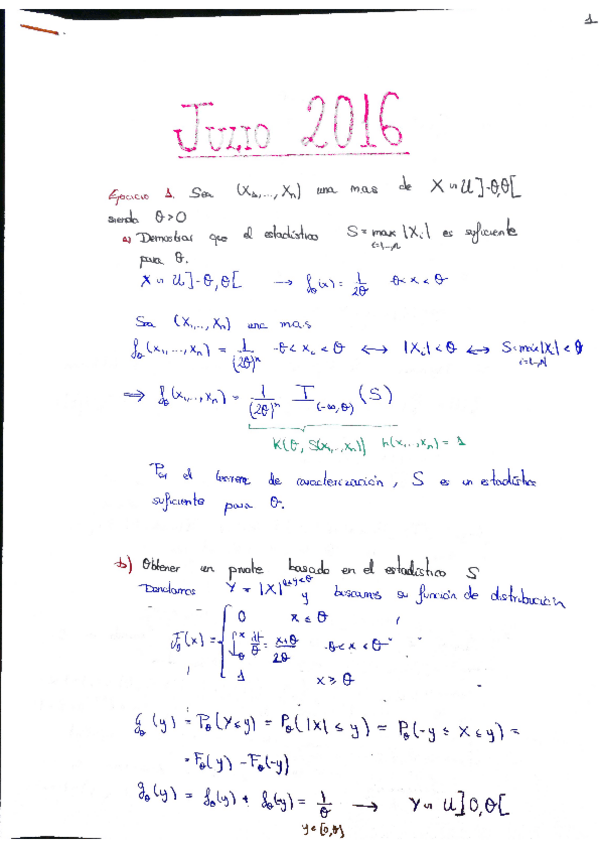 1
JULIO 2016
Ejercicio 1. Sea (X₁,...,Xₙ) una mas de X ~ U]-θ,θ[
siendo θ>0
a) Demostrar que el estadístico S = max |Xᵢ| es suficiente
i=1..n
para θ.
X ~ U]-θ,θ[ → f_θ(x) = 1/2θ -θ<x<θ
Sea (X₁,...,Xₙ) una mas
f_θ(x₁,...,xₙ) = 1/(2θ)ⁿ -θ<xᵢ<θ ↔ |Xᵢ|<θ ↔ S=max|Xᵢ|<θ
i=1..n
⇒ f_θ(x₁,...,xₙ) = 1/(2θ)ⁿ I_(-∞,θ) (S)
K(θ, S(x₁,..,xₙ)) h(x₁,..,xₙ) = 1
Por el teorema de caracterización, S es un estadístico
suficiente para θ.
b) Obtener un pivote basado en el estadístico S
Denotamos Y = |X| 0<y<θ y buscamos su función de distribución
F_θ(x) = { 0 x ≤ θ
∫ dt/θ = x+θ/2θ -θ<x<θ
1 x ≥ θ
G_θ(y) = P_θ(Y≤y) = P_θ(|X| ≤ y) = P_θ(-y ≤ X ≤ y) =
= F_θ(y) - F_θ(-y)
g_θ(y) = f_θ(y) + f_θ(-y) = 1/θ → Y ~ U]0,θ[
y∈[0,θ]